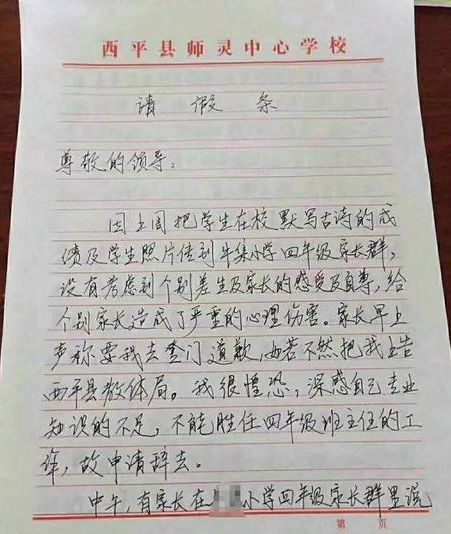 西平县师灵中心学校
请假条
尊敬的领导:
因上周把学生在校默写古诗的成
绩及学生照片传到牛集小学四年级家长群,
没有考虑到个别差生及家长的感受及自尊,给
个别家长造成了严重的心理伤害。家长早上
声称要我去登门道歉,如若不然把我上告
西平县教体局。我很惶恐,深感自己专业
知识的不足,不能胜任四年级班主任的工
作,故申请辞去。
中午,有家长在小学四年级家长群里说
第 页